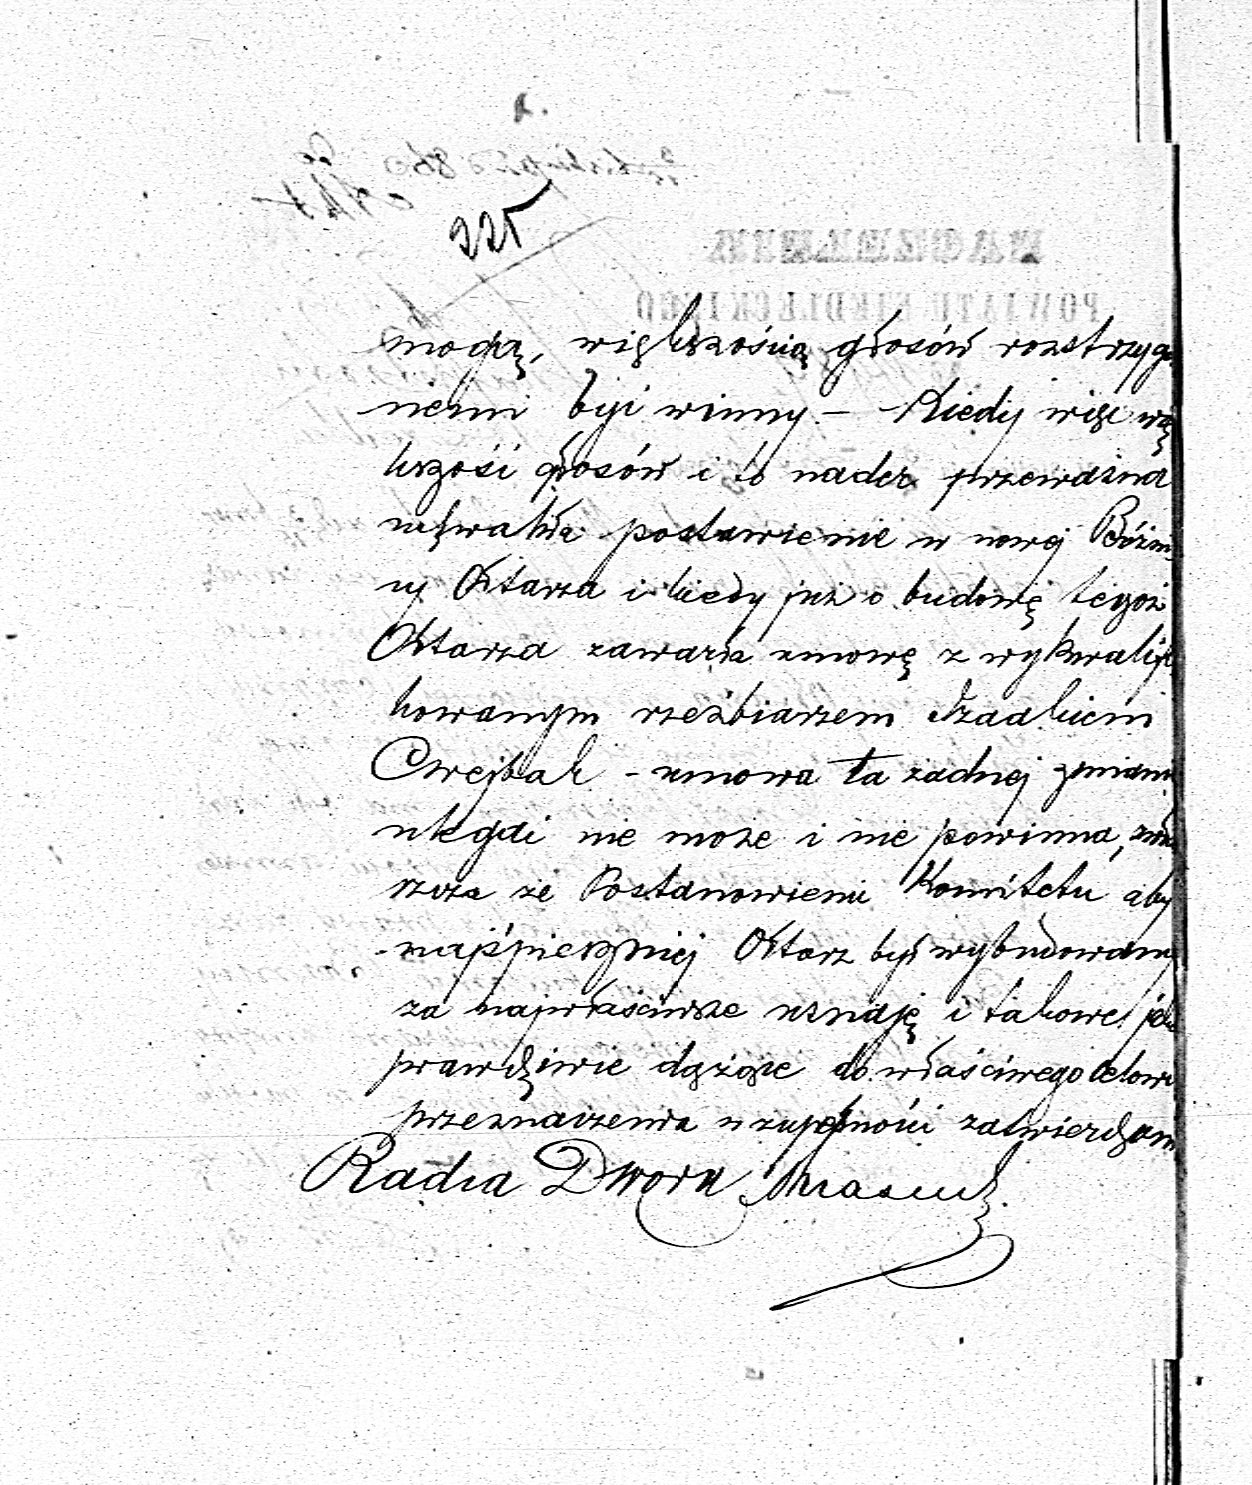 225
mogą, większością głosów rozstrzyg
niemi być winny – Kiedy więc wię
kszość głosów i to nader przeważna
uchwaliła postawienie w nowej Bóżni
cy Ołtarza i kiedy już o budowę tegoż
Ołtarza zawarła umowę z wykwalifi
kowanym rzeźbiarzem Szadkiem
Cwejbak – umowa ta żadnej zmianie
uledz nie może i nie powinna,
szcza że Postanowienie Komitetu aby
najśpieszniej Ołtarz był wybudowany
za najwłaściwsze uznaję i takowe jako
prawdziwie dążące do właściwego celowi
przeznaczenia w zupełności zatwierdzam
Radca Dworu